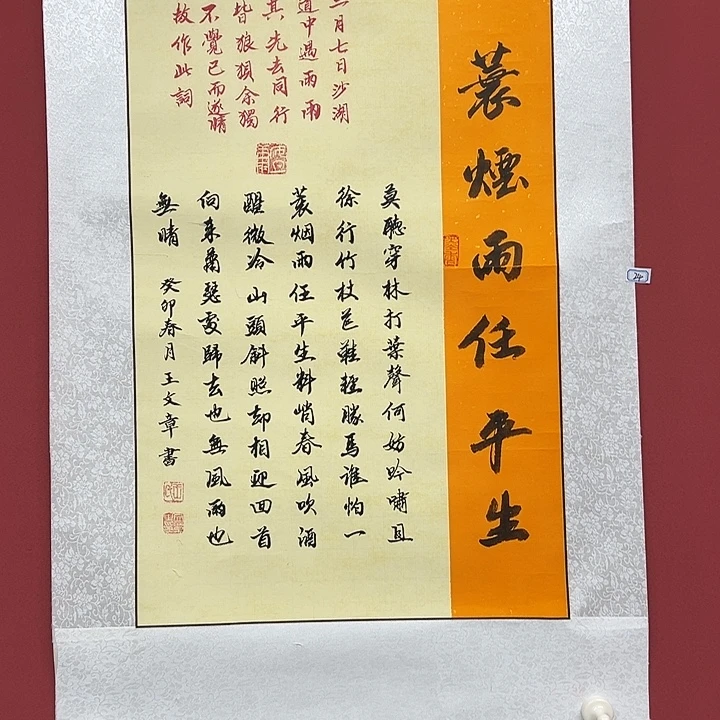 蓑煙雨任平生
三月七日沙湖
道中遇雨雨
其先去同行
皆狼狽余獨
不覺已而遂晴
故作此詞
莫聽穿林打葉聲何妨吟嘯且
徐行竹杖芒鞋輕勝馬誰怕一
蓑烟雨任平生料峭春風吹酒
醒微冷山頭斜照却相迎回首
向来蕭瑟處歸去也無風雨也
無晴
癸卯春月王文章書
24